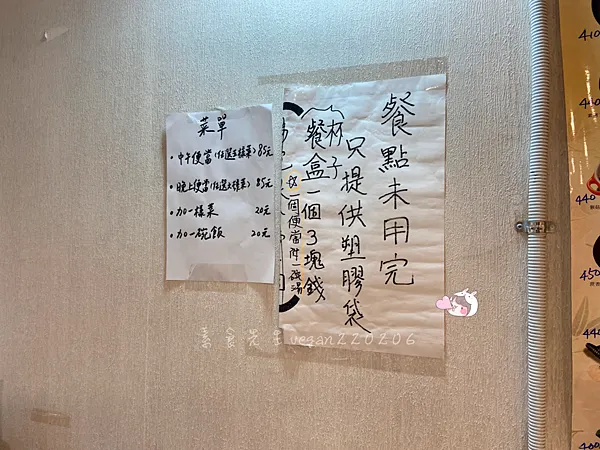 菜單
·中午便當(任選5樣菜)85元
·晚上便當(任選5樣菜)85元
·加一樣菜 20元
·加一碗飯 20元
餐點未用完
只提供塑膠袋
杯子
餐盒一個3塊錢
一個便當附一碗湯
素食先生vegan220206
410
440
450
440
400